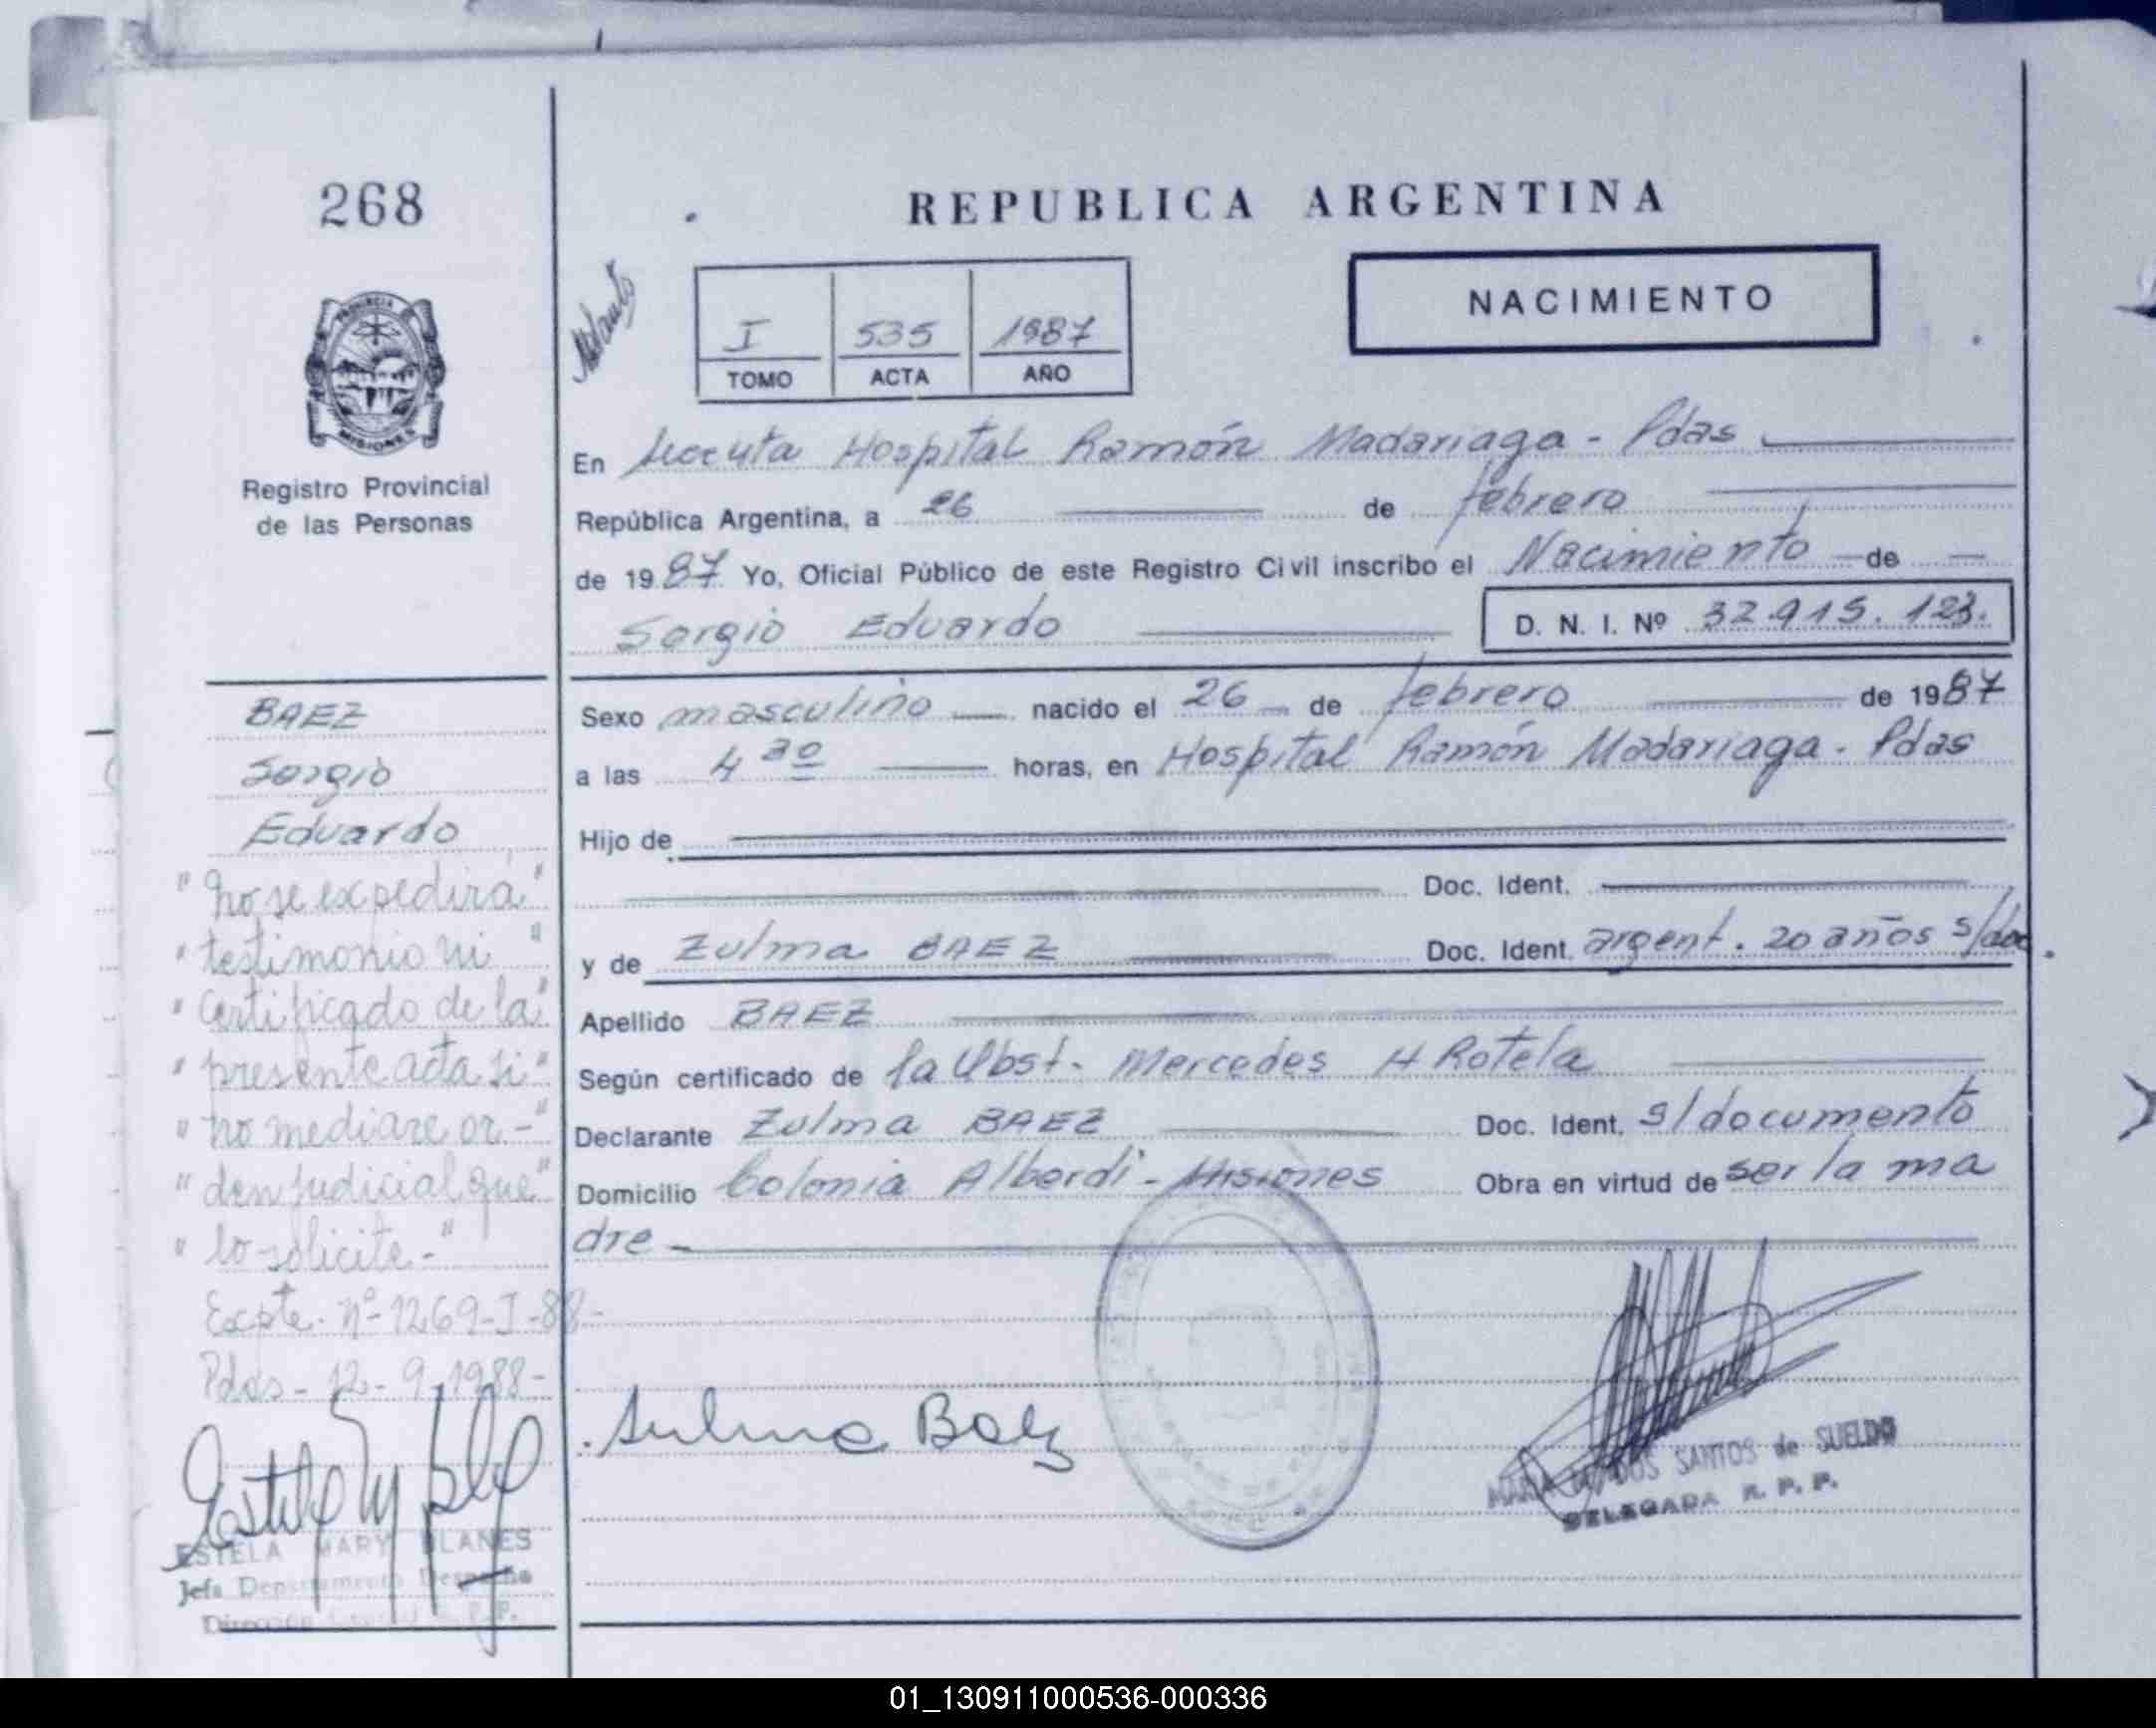 268
REPUBLICA ARGENTINA
NACIMIENTO
I 535 1987
TOMO ACTA AÑO
PROVINCIA
MISIONES
Registro Provincial
de las Personas
En Hospital Ramón Madariaga - Pdas
República Argentina, a 26 de febrero
de 1987 Yo, Oficial Público de este Registro Civil inscribo el Nacimiento de
Sergio Eduardo D. N. I. Nº 32.915.123.
Sexo masculino nacido el 26 de febrero de 1987
a las 4 30 horas, en Hospital Ramón Madariaga - Pdas
Hijo de
Doc. Ident.
y de Zulma BAEZ Doc. Ident. argent. 20 años s/doc.
Apellido BAEZ
Según certificado de la Obst. Mercedes H Rotela
Declarante Zulma BAEZ Doc. Ident. s/documento
Domicilio Colonia Alberdi - Misiones Obra en virtud de ser la ma
dre -
BAEZ
Sergio
Eduardo
"no se expedirá"
"testimonio ni"
"certificado de la"
"presente acta si"
"no mediare or-"
"den judicial que"
"lo solicite-"
Expte. nº 1269-I-88-
Pdas - 12 - 9 - 1988-
Zulma Baez
ESTELA MARY BLANES
Jefa Departamento Despacho
Dirección General R. P. P.
MARIA DOS SANTOS de SUELDO
DELEGADA R. P. P.
01_130911000536-000336